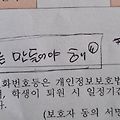 는 만들어야 하여 ④
화번호등은 개인정보보호법
, 학생이 퇴원 시 일정기간
(보호자 동의 서명